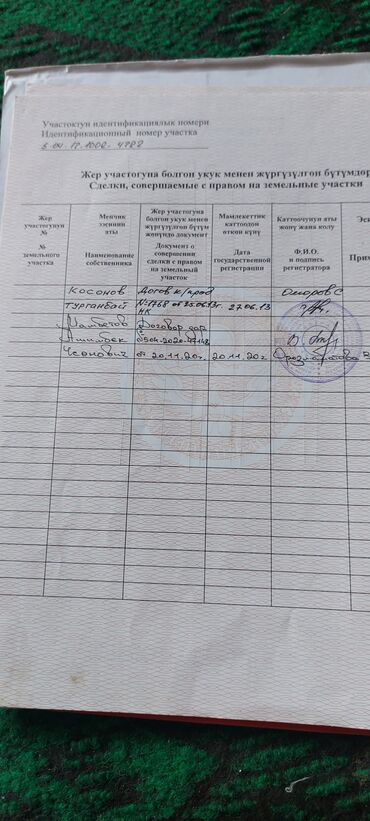 Участоктун идентификациялык номери
Идентификационный номер участка
Жер участогуна болгон укук менен жүргүзүлгөн бүтүмдөр
Сделки, совершаемые с правом на земельные участки
Жер участогунун №
№ земельного участка
Менчик ээсинин аты
Наименование собственника
Жер участогуна болгон укук менен жүргүзүлгөн бүтүм жөнүндө документ
Документ о совершении сделки с правом на земельный участок
Мамлекеттик каттоодон өткөн күнү
Дата государственной регистрации
Каттоочунун аты жөнү жана колу
Ф.И.О. и подпись регистратора
Косонов Догов к/прод Омаров С
Турганбай №1768 от 25.06.13г. 27.06.13
НК
Договор дар
Ашимбек
от 20.11.20г. 20.11.20г